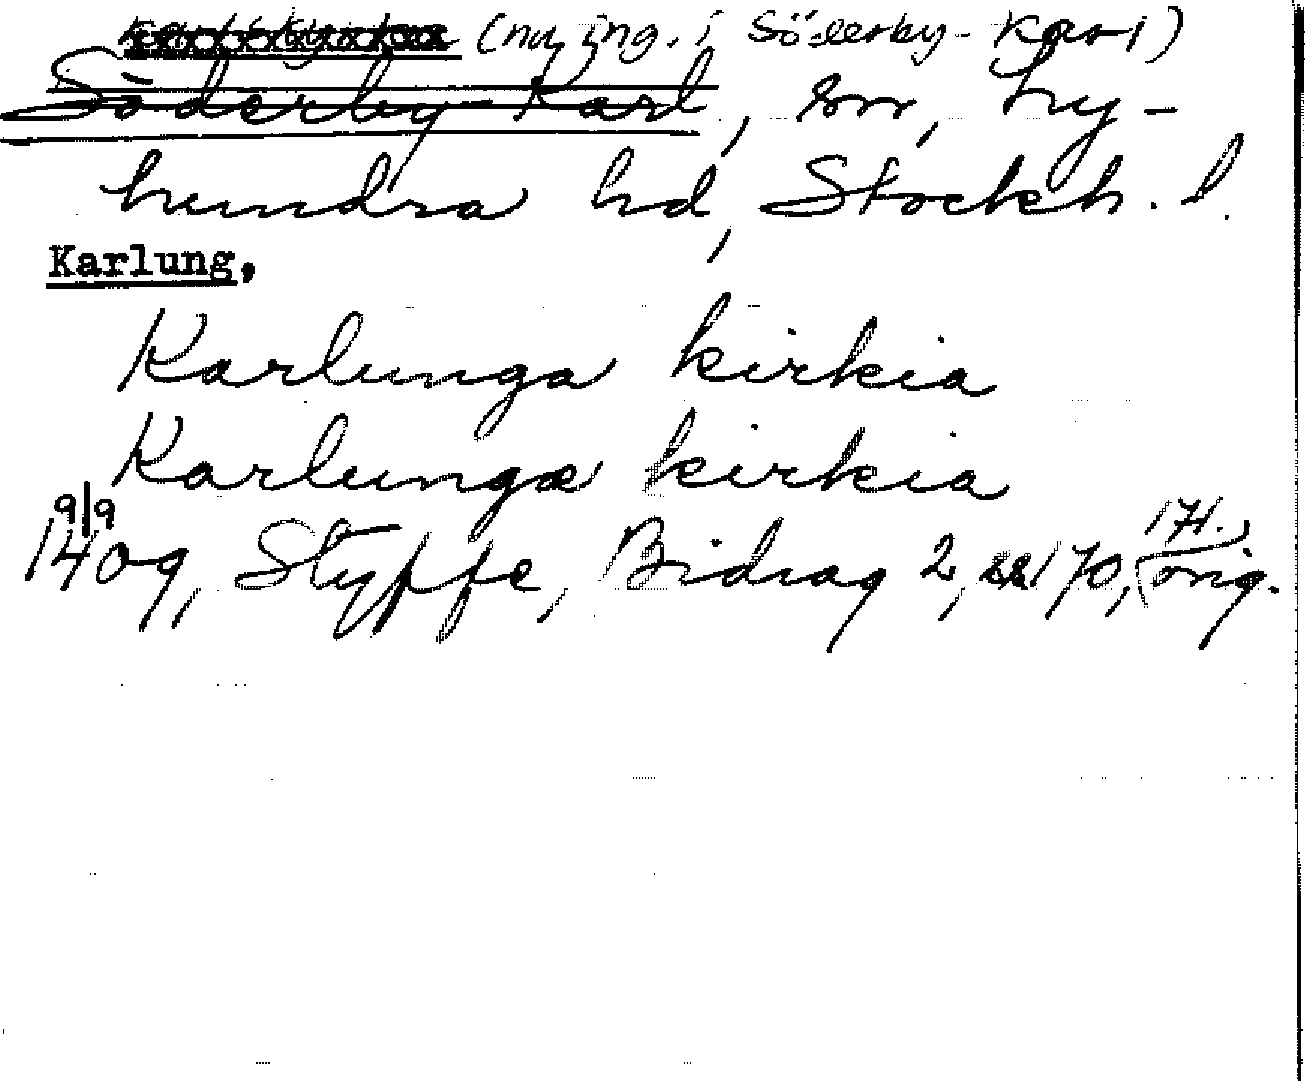 (nu ing. i Söderby-Karl)
Söderby-Karl, sn, Ly-
hundra hd, Stockh. l.
Karlung,
Karlunga kirkia
Karlungæ kirkia
9/9 171.
1409, Styffe, Bidrag 2, s 170, (orig.